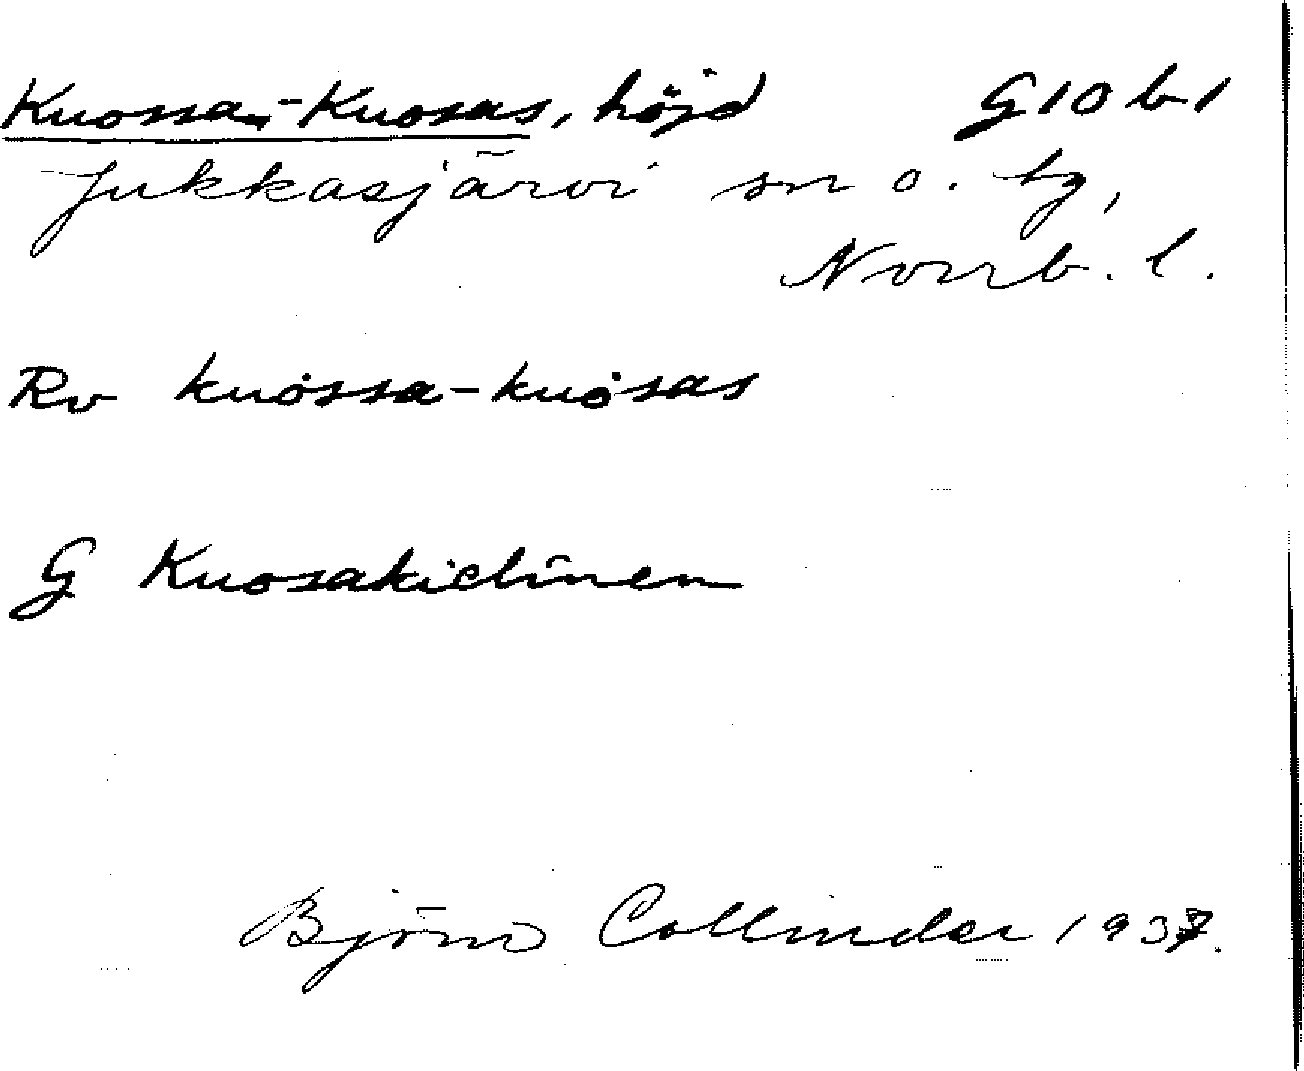 Kuossa-Kuosas, höjd G 10 b 1
Jukkasjärvi sn o. tg,
Norrb. l.
Rv kuossa-kuosas
G Kuosakielinen
Björn Collinder 1937.